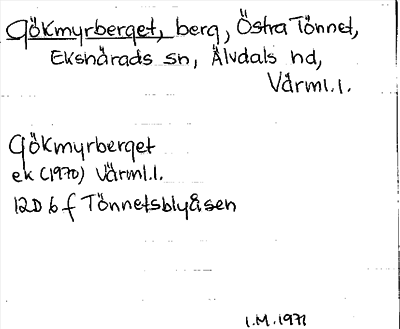 Gökmyrberget, berg, Östra Tönnet,
Ekshärads sn, Älvdals hd,
Värml.l.
Gökmyrberget
ek (1970) Värml.l.
12D 6 f Tönnetsblyåsen
I.M. 1971